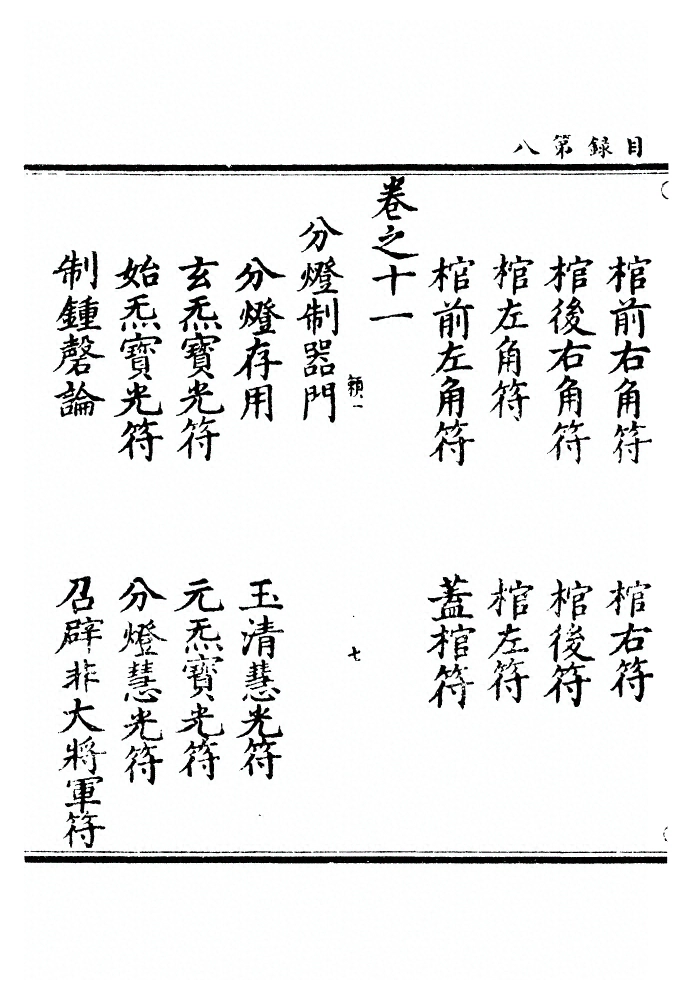 目錄第八
棺前右角符　棺右符
棺後右角符　棺後符
棺左角符　棺左符
棺前左角符　蓋棺符
卷之十一
頼一　七
分燈制器門
分燈存用　玉清慧光符
玄炁寶光符　元炁寶光符
始炁寶光符　分燈慧光符
制鍾磬論　召辟非大將軍符